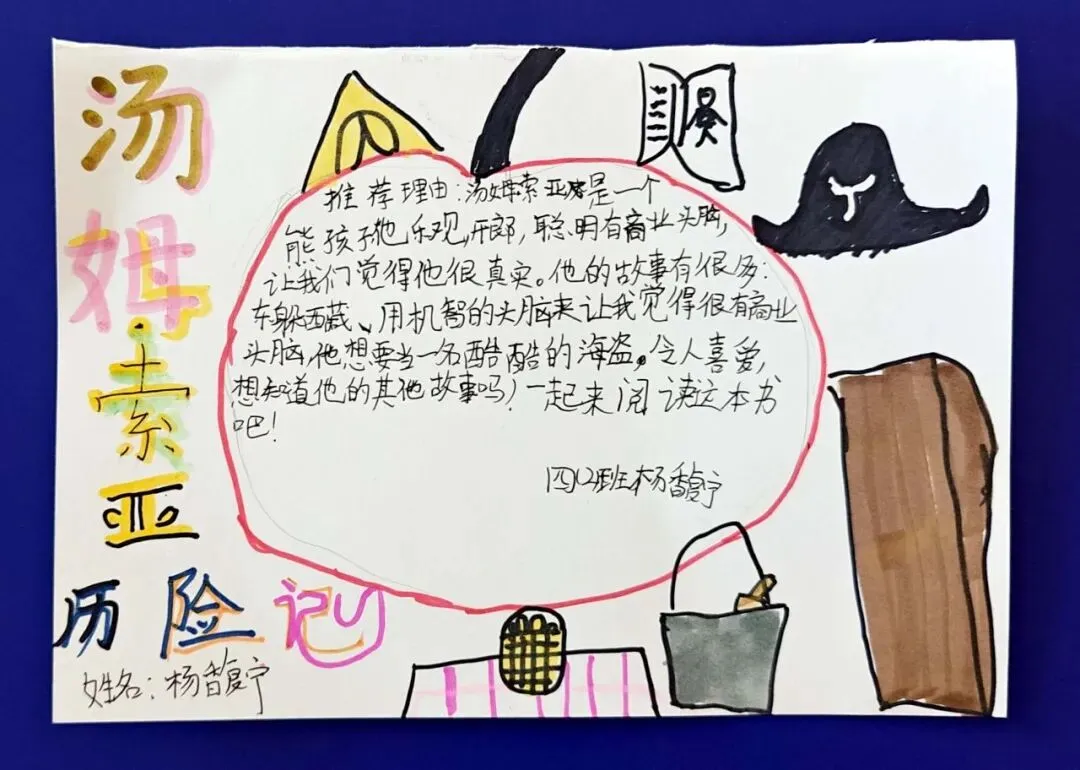 汤姆索亚
历险记
姓名：杨馥宁
推荐理由：汤姆索亚是一个
熊孩子他乐观，开郎，聪明有商业头脑，
让我们觉得他很真实。他的故事有很多：
东躲西藏、用机智的头脑来让我觉得很有商业
头脑，他想要当一名酷酷的海盗。令人喜爱，
想知道他的其他故事吗？一起来阅读这本书
吧！
四班杨馥宁